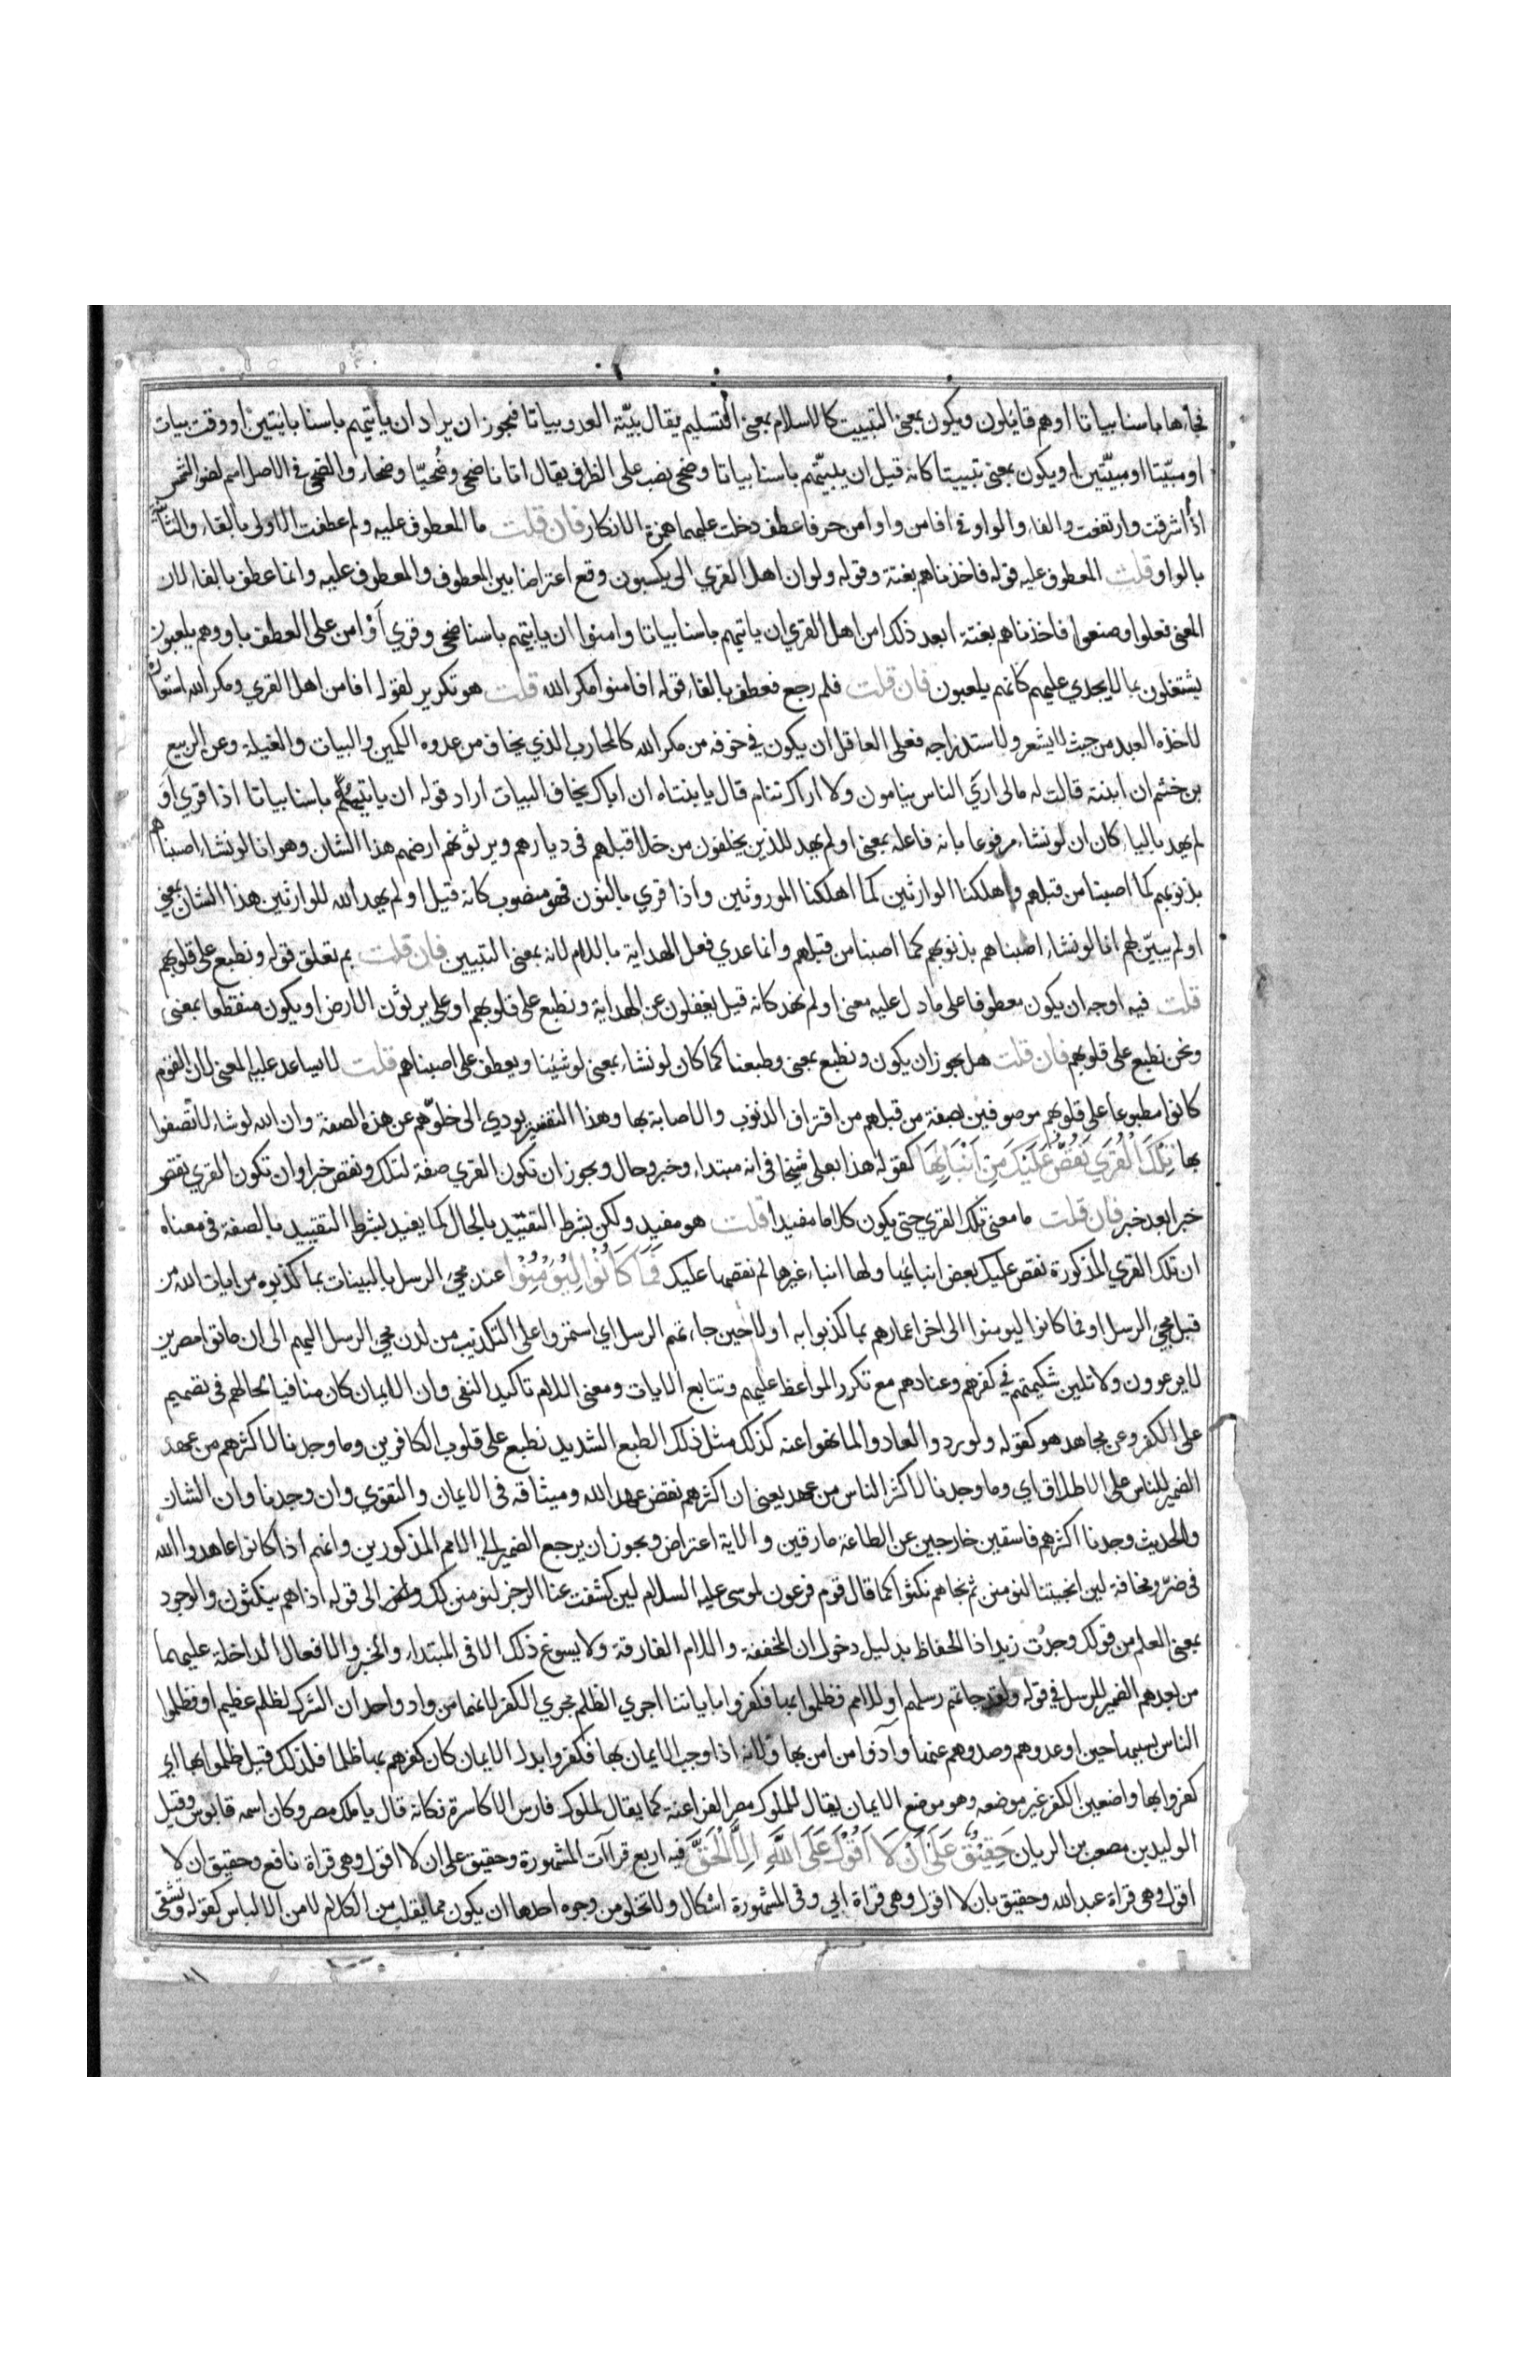 فجاءها باسنا بياتا اوهم قايلون ويكون بمعنى التبييت كالسلام بمعنى التسليم يقال بيّته العدو بياتا فيجوز ان يراد ان ياتيهم باسنا بايتين او وقت بيات
او مبيّتا او مبيّتين او يكون بمعنى تبييتا كانه قيل ان يبيّتهم باسنا بياتا وضحى نصب على الظرف يقال اتانا ضحى وضُحيّا وضحاء والضحى فى الاصل اسم لضوء الشمس
اذا اشرقت وارتفعت والفاء والواو فى افامن واوامن حرفا عطف دخلت عليهما همزة الانكار فان قلت ما المعطوف عليه ولم عطفت الاولى بالفاء والثانية
بالواو قلت المعطوف عليه قوله فاخذناهم بغتة وقوله ولو ان اهل القري الى يكسبون وقع اعتراضا بين المعطوف والمعطوف عليه وانما عطف بالفاء لان
المعنى فعلوا وصنعوا فاخذناهم بغتة ابعد ذلك امن اهل القري ان ياتيهم باسنا بياتا وامنوا ان ياتيهم باسنا ضحى وقري اَوْ امن على العطف باو وهم يلعبون
يشتغلون بما لا يجدي عليهم كانهم يلعبون فان قلت فلم رجع فعطف بالفاء قوله افامنوا مكر الله قلت هو تكرير لقوله افامن اهل القري ومكر الله استعارة
لاخذه العبد من حيث لا يشعر ولاستدراجه فعلى العاقل ان يكون فى خوفه من مكر الله كالمحارب الذي يخاف من عدوه الكمين والبيات والغيلة وعن الربيع
بن خثيم ان ابنته قالت له مالى اري الناس ينامون ولا اراك تنام قال يا بنتاه ان اباك يخاف البيات اراد قوله ان ياتيهم باسنا بياتا اذا قري اَوَ
لم يهد بالياء كان ان لو نشاء مرفوعا بانه فاعله بمعنى اولم يهد للذين يخلفون من خلا قبلهم فى ديارهم ويرثونهم ارضهم هذا الشان وهو انا لو نشاء اصبناهم
بذنوبهم كما اصبنا من قبلهم واهلكنا الوارثين كما اهلكنا الموروثين واذا قري بالنون فهو منصوب كانه قيل اولم يهد الله للوارثين هذا الشان بمعنى
اولم يبيّن لهم انا لو نشاء اصبناهم بذنوبهم كما اصبنا من قبلهم وانما عدي فعل الهداية باللام لانه بمعنى التبيين فان قلت بم تعلق قوله ونطبع على قلوبهم
قلت فيه اوجه ان يكون معطوفا على ما دل عليه معنى اولم نهد كانه قيل يغفلون عن الهداية ونطبع على قلوبهم او على يرثون الارض او يكون منقطعا بمعنى
ونحن نطبع على قلوبهم فان قلت هل يجوز ان يكون ونطبع بمعنى وطبعنا كما كان لو نشاء بمعنى لو شئنا ويعطف على اصبناهم قلت لا يساعد عليه المعنى لان القوم
كانوا مطبوعا على قلوبهم موصوفين بصفة من قبلهم من اقتراف الذنوب والاصابة بها وهذا التفسير يودي الى خلوّهم عن هذه الصفة وان الله لو شاء لاتّصفوا
بها تِلْكَ الْقُرَي نَقُصُّ عَلَيْكَ مِنْ اَنْبَايِهَا كقوله هذا بعلى شيخا فى انه مبتداء وخبر وحال ويجوز ان تكون القري صفة لتلك ونقص خبرا وان تكون القري نقص
خبرا بعد خبر فان قلت ما معنى تلك القري حتى يكون كلاما مفيدا قلت هو مفيد ولكن بشرط التقييد بالحال كما يفيد بشرط التقييد بالصفة فى معناه
ان تلك القري المذكورة نقص عليك بعض انبائها ولها انباء غيرها لم نقصها عليك فَمَا كَانُوْا لِيُؤْمِنُوْا عند مجئ الرسل بالبينات بما كذبوه من ايات الله من
قبل مجئ الرسل او فما كانوا ليومنوا الى اخر اعمارهم بما كذبوا به اولا حين جاءتهم الرسل اي استمروا على التكذيب من لدن مجئ الرسل اليهم الى ان ماتوا مصرين
لا يرعوون ولا تلين شكيمتهم فى كفرهم وعنادهم مع تكرر المواعظ عليهم وتتابع الايات ومعنى اللام تاكيد النفى وان الايمان كان منافيا لحالهم فى تصميم
على الكفر وعن مجاهد هو كقوله ولو ردوا لعادوا لما نهوا عنه كذلك مثل ذلك الطبع الشديد نطبع على قلوب الكافرين وما وجدنا لاكثرهم من عهد
الضمير للناس على الاطلاق اي وما وجدنا لاكثر الناس من عهد يعنى ان اكثرهم نقض عهد الله وميثاقه فى الايمان والتقوي وان وجدنا وان الشان
والحديث وجدنا اكثرهم فاسقين خارجين عن الطاعة مارقين والاية اعتراض ويجوز ان يرجع الضمير الى الامم المذكورين وانهم اذا كانوا عاهدوا الله
فى ضرّ ومخافة لين انجيتنا لنومنن ثم نجاهم نكثوا كما قال قوم فرعون لموسى عليه السلام لين كشفت عنا الرجز لنومنن لك الى قوله اذا هم ينكثون والوجود
بمعنى العلم من قولك وجدْت زيدا ذا الحفاظ بدليل دخول ان المخففة واللام الفارقة ولا يسوغ ذلك الا فى المبتداء والخبر والافعال الداخلة عليهما
من بعدهم الضمير للرسل فى قوله ولقد جاءتهم رسلهم او للامم فظلموا بها فكفروا باياتنا اجري الظلم مجري الكفر لانهما من واد واحد ان الشرك لظلم عظيم او فظلموا
الناس بسببها حين اوعدوهم وصدوهم عنها وآذوا من امن بها ولانه اذا وجب الايمان بها فكفروا بدل الايمان كان كفرهم بها ظلما فلذلك قيل ظلموا بها اي
كفروا بها واضعين الكفر غير موضعه وهو موضع الايمان يقال لملوك مصر الفراعنة كما يقال لملوك فارس الاكاسرة فكانه قال يا ملك مصر وكان اسمه قابوس وقيل
الوليد بن مصعب بن الريان حَقِيْقٌ عَلَى اَنْ لَا اَقُوْلَ عَلَى اللَّهِ اِلَّا الْحَقَّ فيه اربع قراآت المشهورة وحقيق على ان لا اقول وهى قراة نافع وحقيق ان لا
اقول وهى قراة عبد الله وحقيق بان لا اقول وهى قراة ابي وفى المشهورة اشكال ولا تخلو من وجوه احدها ان يكون مما يقلب من الكلام لامن الالباس كقوله وتشقى